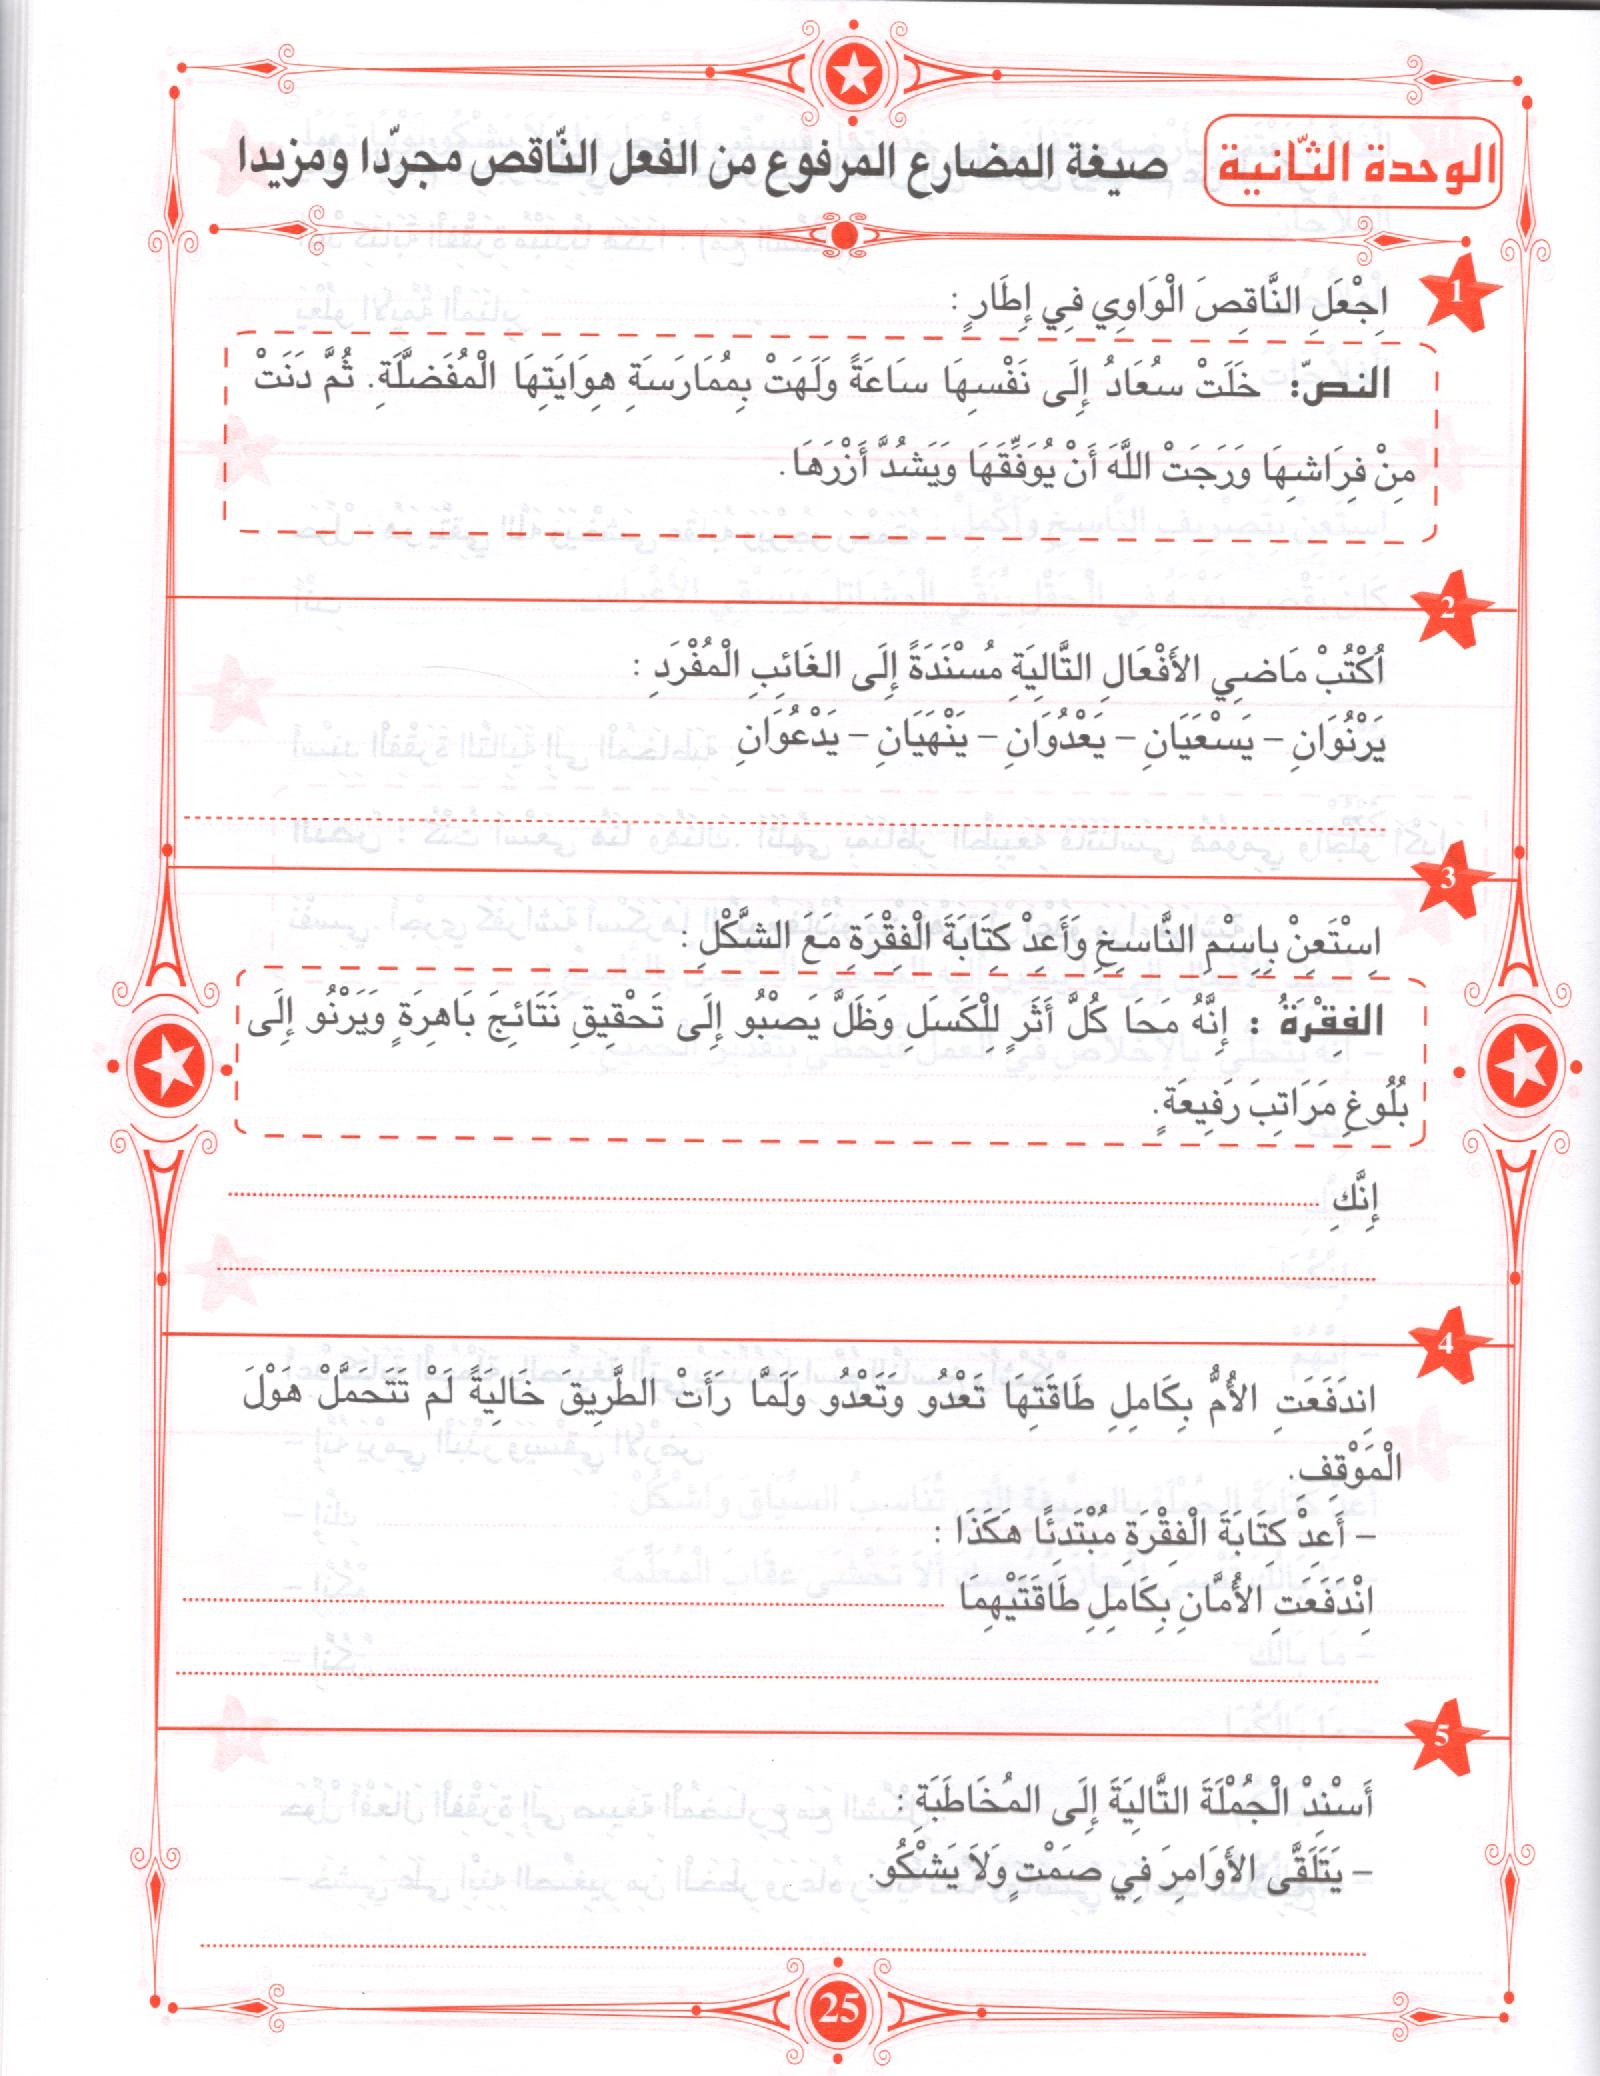 الوحدة الثّانية صيغة المضارع المرفوع من الفعل النّاقص مجردّا ومزيدا
1
اِجْعَلِ النَّاقِصَ الْوَاوِي فِي إِطَارٍ :
النصّ: خَلَتْ سُعَادُ إِلَى نَفْسِهَا سَاعَةً وَلَهَتْ بِمُمَارَسَةِ هِوَايَتِهَا الْمُفَضَّلَةِ. ثُمَّ دَنَتْ
مِنْ فِرَاشِهَا وَرَجَتْ اللَّهَ أَنْ يُوَفِّقَهَا وَيَشُدَّ أَزْرَهَا.
2
اُكْتُبْ مَاضِي الأَفْعَالِ التَّالِيَةِ مُسْنَدَةً إِلَى الغَائِبِ الْمُفْرَدِ :
يَرْنُوَانِ – يَسْعَيَانِ – يَعْدُوَانِ – يَنْهَيَانِ – يَدْعُوَانِ
3
اِسْتَعِنْ بِاِسْمِ النَّاسِخِ وَأَعِدْ كِتَابَةَ الْفِقْرَةِ مَعَ الشَّكْلِ :
الفِقْرَةُ : إِنَّهُ مَحَا كُلَّ أَثَرٍ لِلْكَسَلِ وَظَلَّ يَصْبُو إِلَى تَحْقِيقِ نَتَائِجَ بَاهِرَةٍ وَيَرْنُو إِلَى
بُلُوغِ مَرَاتِبَ رَفِيعَةٍ.
إِنَّكِ
4
اِندَفَعَتِ الأُمُّ بِكَامِلِ طَاقَتِهَا تَعْدُو وَتَعْدُو وَلَمَّا رَأَتْ الطَّرِيقَ خَالِيَةً لَمْ تَتَحمَّلْ هَوْلَ
الْمَوْقِفِ.
– أَعِدْ كِتَابَةَ الْفِقْرَةِ مُبْتَدِئًا هَكَذَا :
اِنْدَفَعَتِ الأُمَّانِ بِكَامِلِ طَاقَتَيْهِمَا
5
أَسْنِدْ الْجُمْلَةَ التَّالِيَةَ إِلَى المُخَاطَبَةِ :
– يَتَلَقَّى الأَوَامِرَ فِي صَمْتٍ وَلاَ يَشْكُو.
25